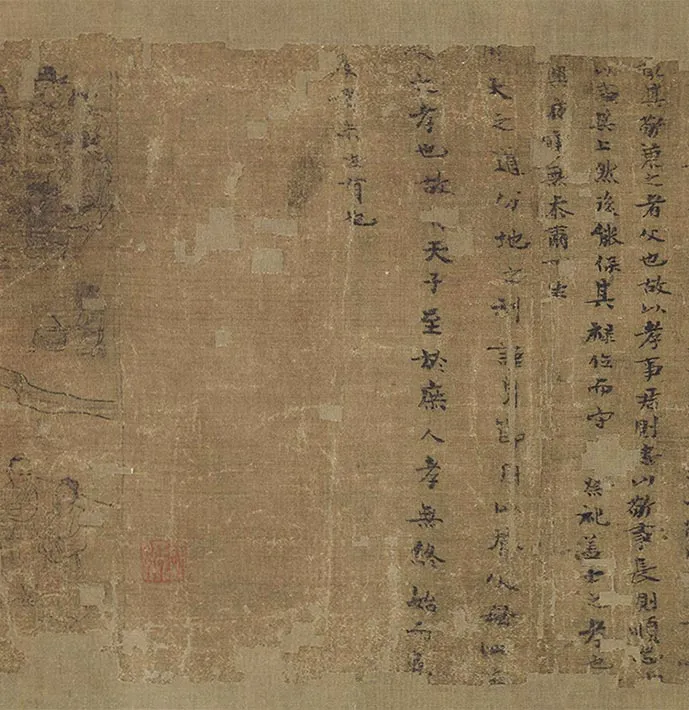 其敬兼之者父也故以孝事君則忠以敬事長則順忠
以事其上然後能保其祿位而守祭祀蓋士之孝也
興夜寐無忝爾生
天之道分地之利謹身節用以養父母此
孝也故天子至於庶人孝無終始而患
及者未之有也